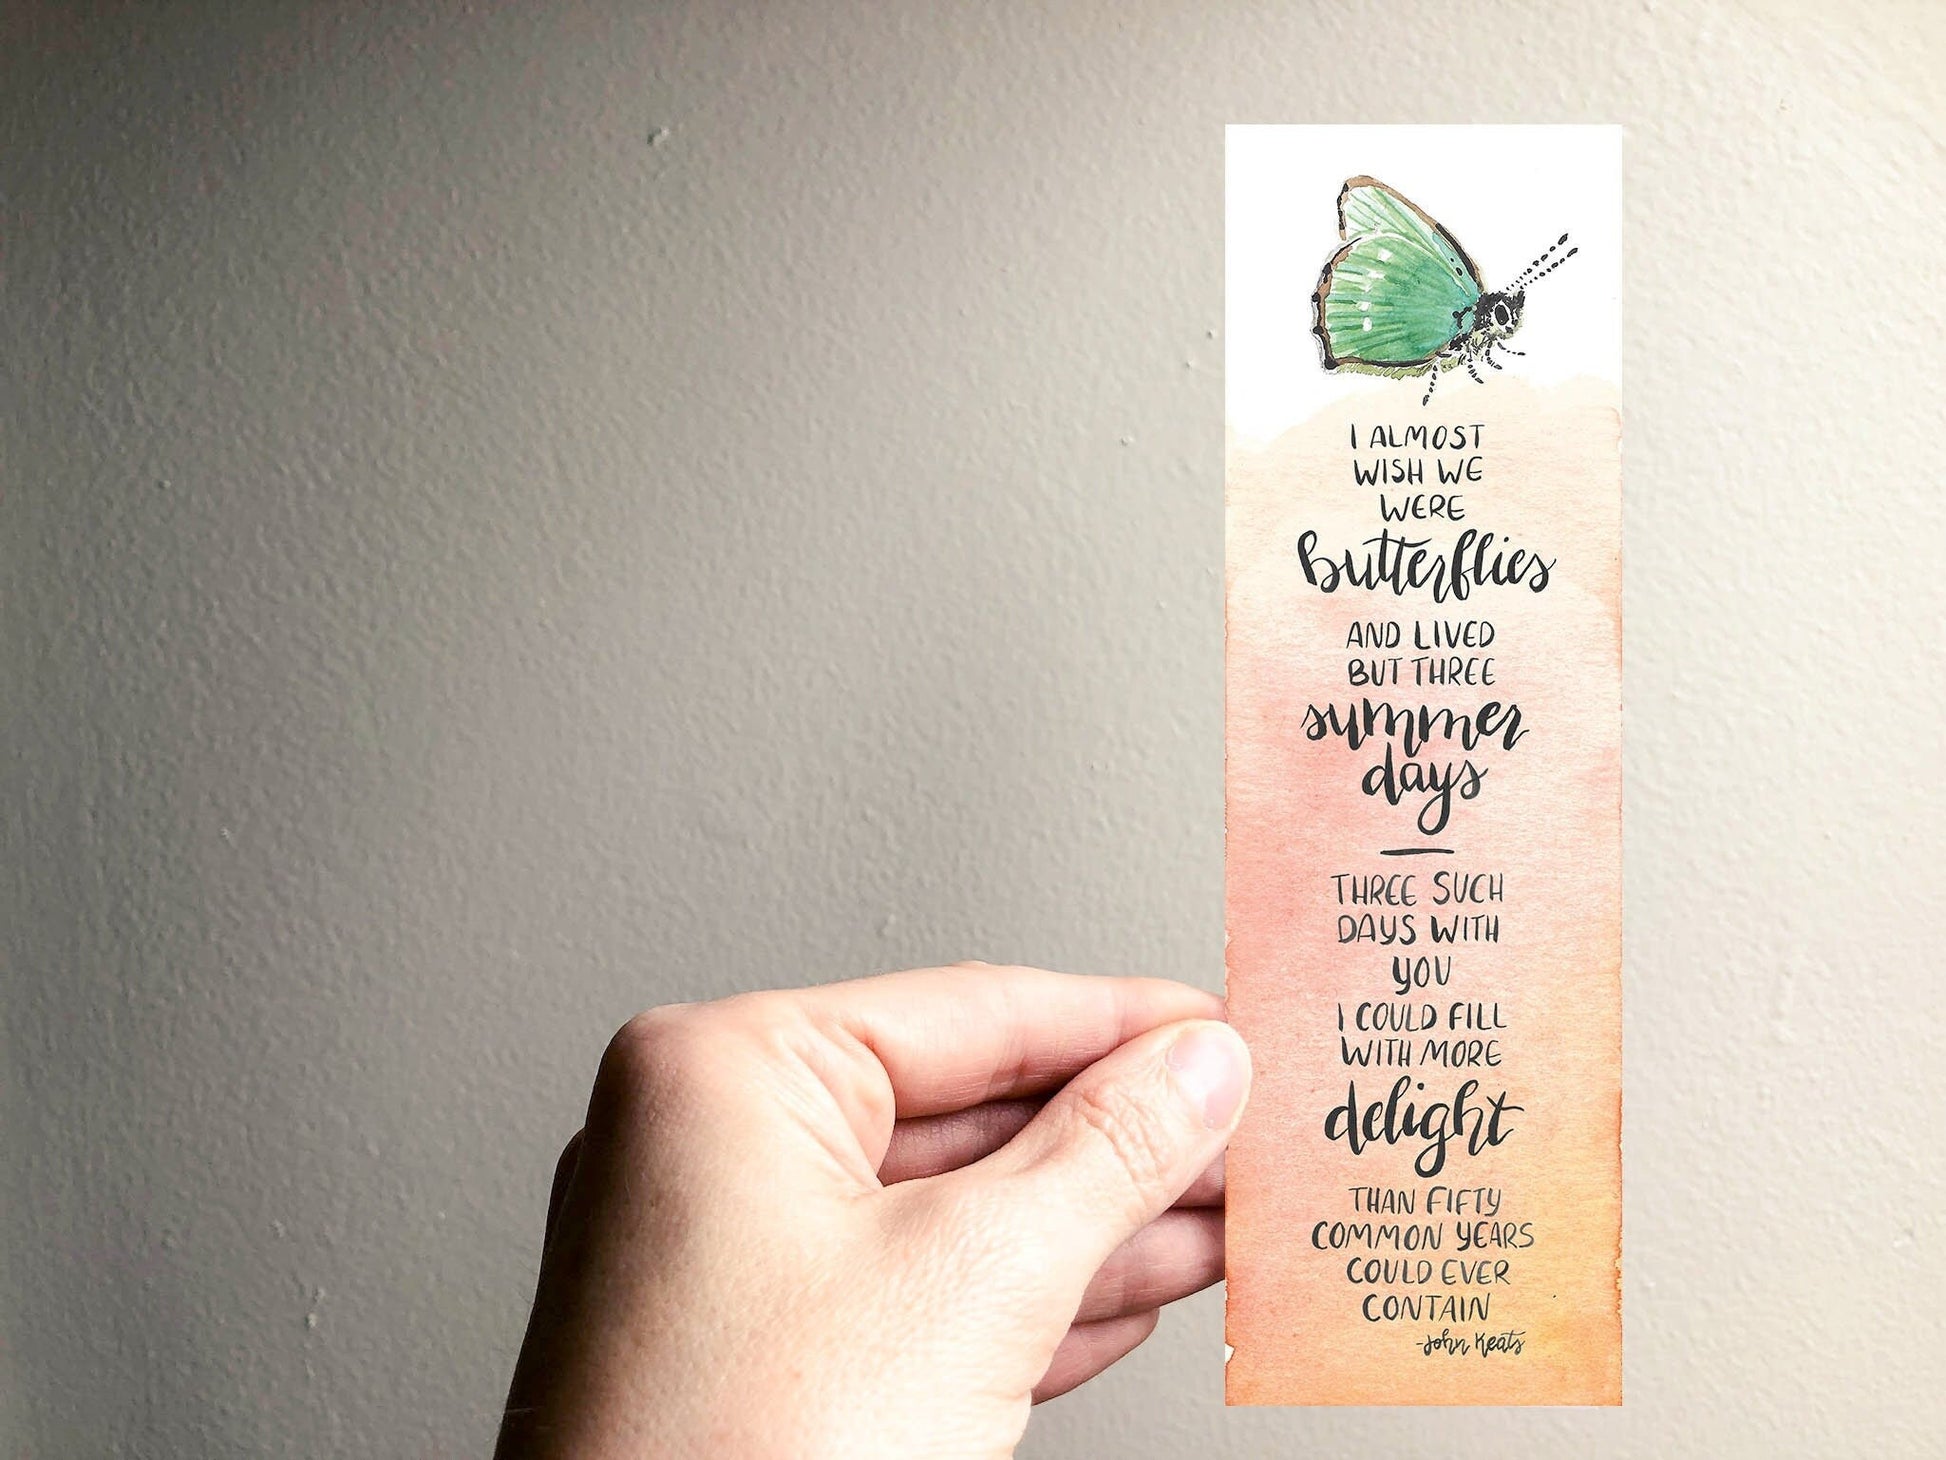 I ALMOST
WISH WE
WERE
butterflies
AND LIVED
BUT THREE
summer
days
—
THREE SUCH
DAYS WITH
YOU
I COULD FILL
WITH MORE
delight
THAN FIFTY
COMMON YEARS
COULD EVER
CONTAIN
-John Keats